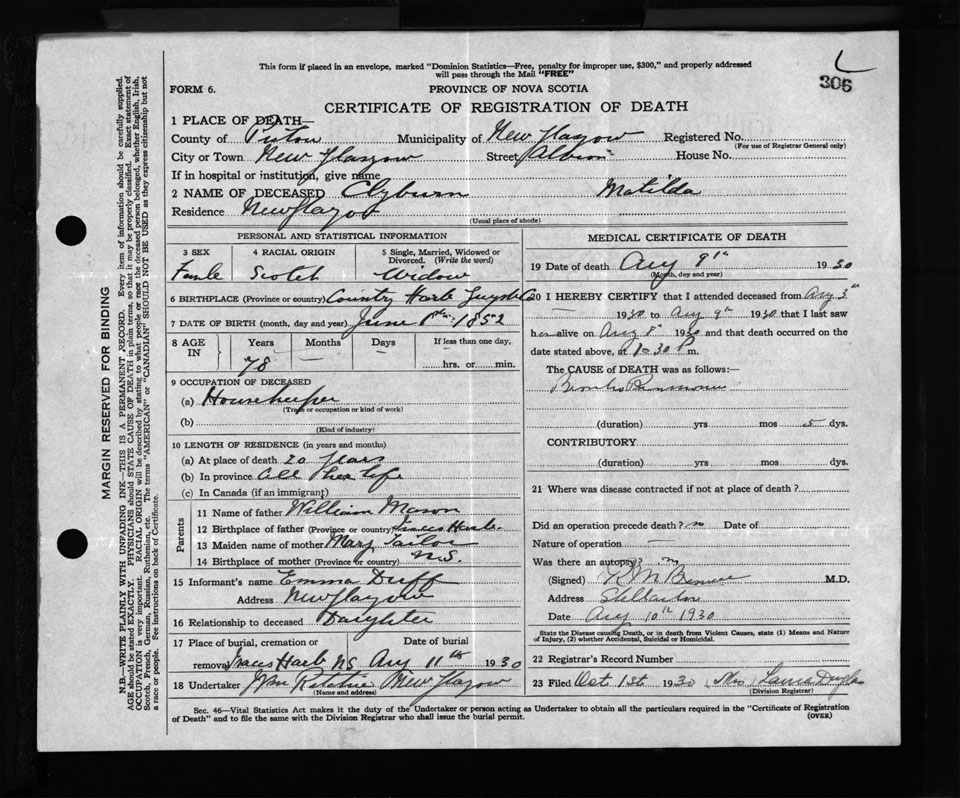 This form if placed in an envelope, marked "Dominion Statistics—Free, penalty for improper use, $300," and properly addressed
will pass through the Mail "FREE"
L
306
FORM 6.
PROVINCE OF NOVA SCOTIA
CERTIFICATE OF REGISTRATION OF DEATH
1 PLACE OF DEATH—
County of Pictou Municipality of New Glasgow Registered No.
(For use of Registrar General only)
City or Town New Glasgow Street Albion House No.
If in hospital or institution, give name
2 NAME OF DECEASED Clyburn Matilda
Residence New Glasgow
(Usual place of abode)
PERSONAL AND STATISTICAL INFORMATION
3 SEX 4 RACIAL ORIGIN 5 Single, Married, Widowed or Divorced. (Write the word)
Female Scotch Widow
6 BIRTHPLACE (Province or country) Country Harb
7 DATE OF BIRTH (month, day and year) June 8th 1852
8 AGE IN Years Months Days If less than one day,
78 — — hrs. or min.
9 OCCUPATION OF DECEASED
(a) Housekeeper
(Trade or occupation or kind of work)
(b)
(Kind of industry)
10 LENGTH OF RESIDENCE (in years and months)
(a) At place of death 20 years
(b) In province all her life
(c) In Canada (if an immigrant)
Parents
11 Name of father William Mason
12 Birthplace of father (Province or country) Isaacs Harb
13 Maiden name of mother Mary Tailor
14 Birthplace of mother (Province or country) N.S.
15 Informant's name Emma Duff
Address New Glasgow
16 Relationship to deceased Daughter
17 Place of burial, cremation or Date of burial
removal Isaacs Harb NS Aug 11th 1930
18 Undertaker New Glasgow
(Name and address)
MEDICAL CERTIFICATE OF DEATH
19 Date of death Aug 9th 1930
(Month, day and year)
20 I HEREBY CERTIFY that I attended deceased from Aug 3rd
1930 to Aug 9th 1930 that I last saw
her alive on Aug 8th 1930 and that death occurred on the
date stated above, at 1-30 P m.
The CAUSE of DEATH was as follows:—
Broncho Pneumonia
(duration) yrs mos 5 dys.
CONTRIBUTORY
(duration) yrs. mos. dys.
21 Where was disease contracted if not at place of death?
Did an operation precede death? no Date of
Nature of operation —
Was there an autopsy? no
(Signed) M.D.
Address Stellarton
Date Aug 10th 1930
State the Disease causing Death, or in death from Violent Causes, state (1) Means and Nature
of Injury, (2) whether Accidental, Suicidal or Homicidal.
22 Registrar's Record Number
23 Filed Oct 1st 1930 Mrs
(Division Registrar)
Sec. 46—Vital Statistics Act makes it the duty of the Undertaker or person acting as Undertaker to obtain all the particulars required in the "Certificate of Registration
of Death" and to file the same with the Division Registrar who shall issue the burial permit.
(OVER)
MARGIN RESERVED FOR BINDING
N.B.—WRITE PLAINLY WITH UNFADING INK—THIS IS A PERMANENT RECORD. Every item of information should be carefully supplied.
AGE should be stated EXACTLY. PHYSICIANS should STATE CAUSE OF DEATH in plain terms, so that it may be properly classified. Exact statement of
OCCUPATION is very important. RACIAL ORIGIN will be described by stating to what people or race the deceased person belonged, whether English, Irish,
Scotch, French, German, Russian, Ruthenian, etc. The terms "AMERICAN" or "CANADIAN" SHOULD NOT BE USED as they express citizenship but not
a race or people. See instructions on back of Certificate.